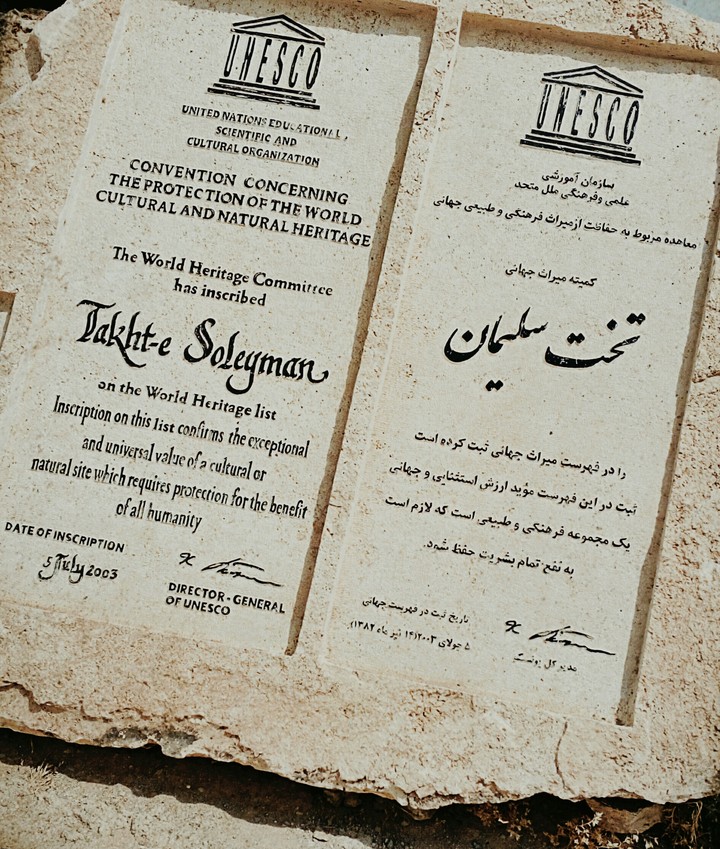 UNESCO
UNITED NATIONS EDUCATIONAL,
SCIENTIFIC AND
CULTURAL ORGANIZATION
CONVENTION CONCERNING
THE PROTECTION OF THE WORLD
CULTURAL AND NATURAL HERITAGE
The World Heritage Committee
has inscribed
Takht-e Soleyman
on the World Heritage list
Inscription on this list confirms the exceptional
and universal value of a cultural or
natural site which requires protection for the benefit
of all humanity
DATE OF INSCRIPTION
5 July 2003
DIRECTOR-GENERAL
OF UNESCO
UNESCO
سازمان آموزشی
علمی وفرهنگی ملل متحد
معاهده مربوط به حفاظت ازمیراث فرهنگی و طبیعی جهانی
کمیته میراث جهانی
تخت سلیمان
را در فهرست میراث جهانی ثبت کرده است
ثبت در این فهرست مؤید ارزش استثنایی و جهانی
یک مجموعه فرهنگی و طبیعی است که لازم است
به نفع تمام بشریت حفظ شود.
تاریخ ثبت در فهرست جهانی
۵ جولای ۲۰۰۳(۱۴ تیر ماه ۱۳۸۲)
مدیر کل یونسکو